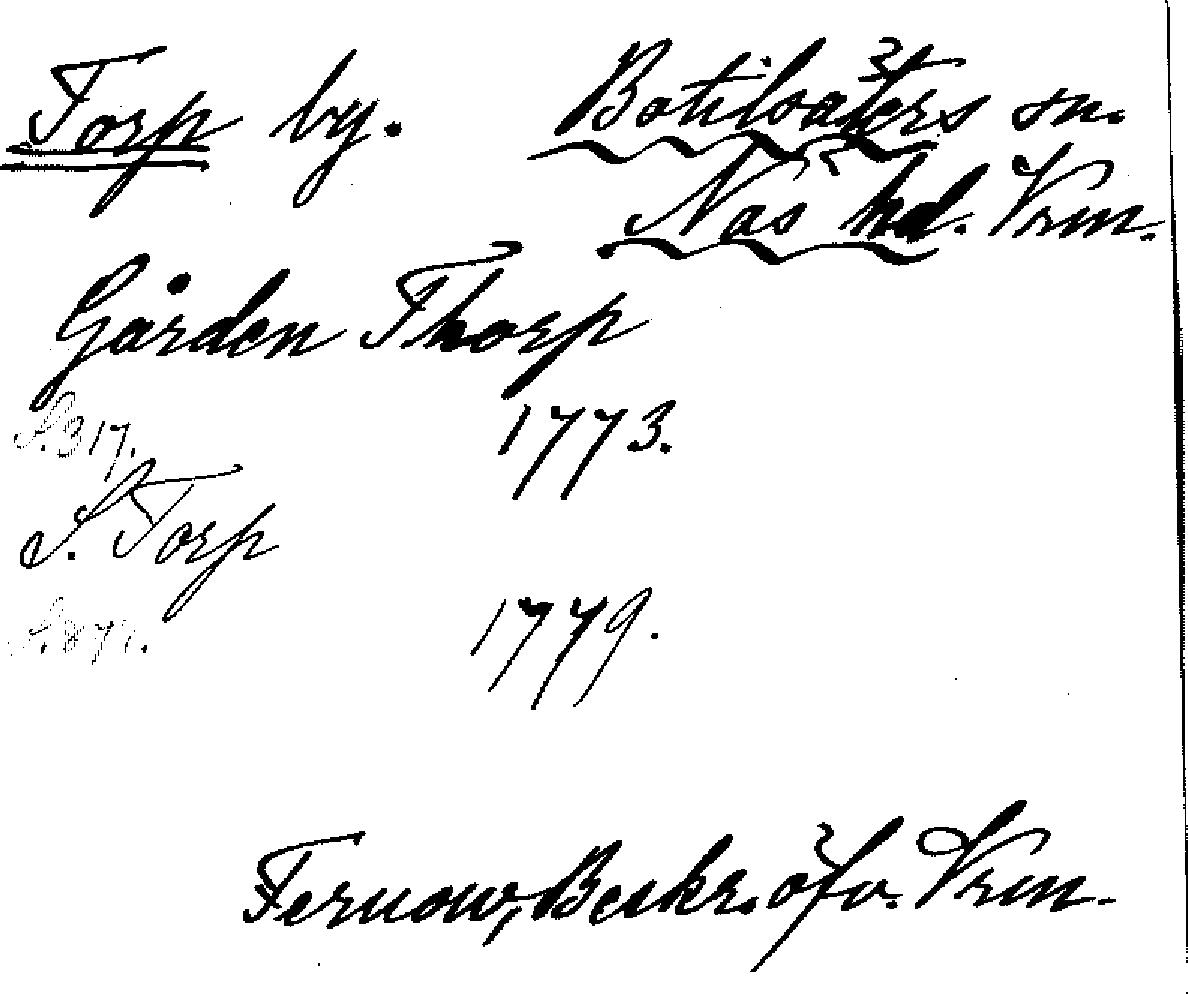 Torp by. Botilsäters sn.
Näs hd. Vrm.
Gården Thorp
S. 317. 1773.
S. Torp
1779.
Fernow, Beskr. öfv. Vrm.